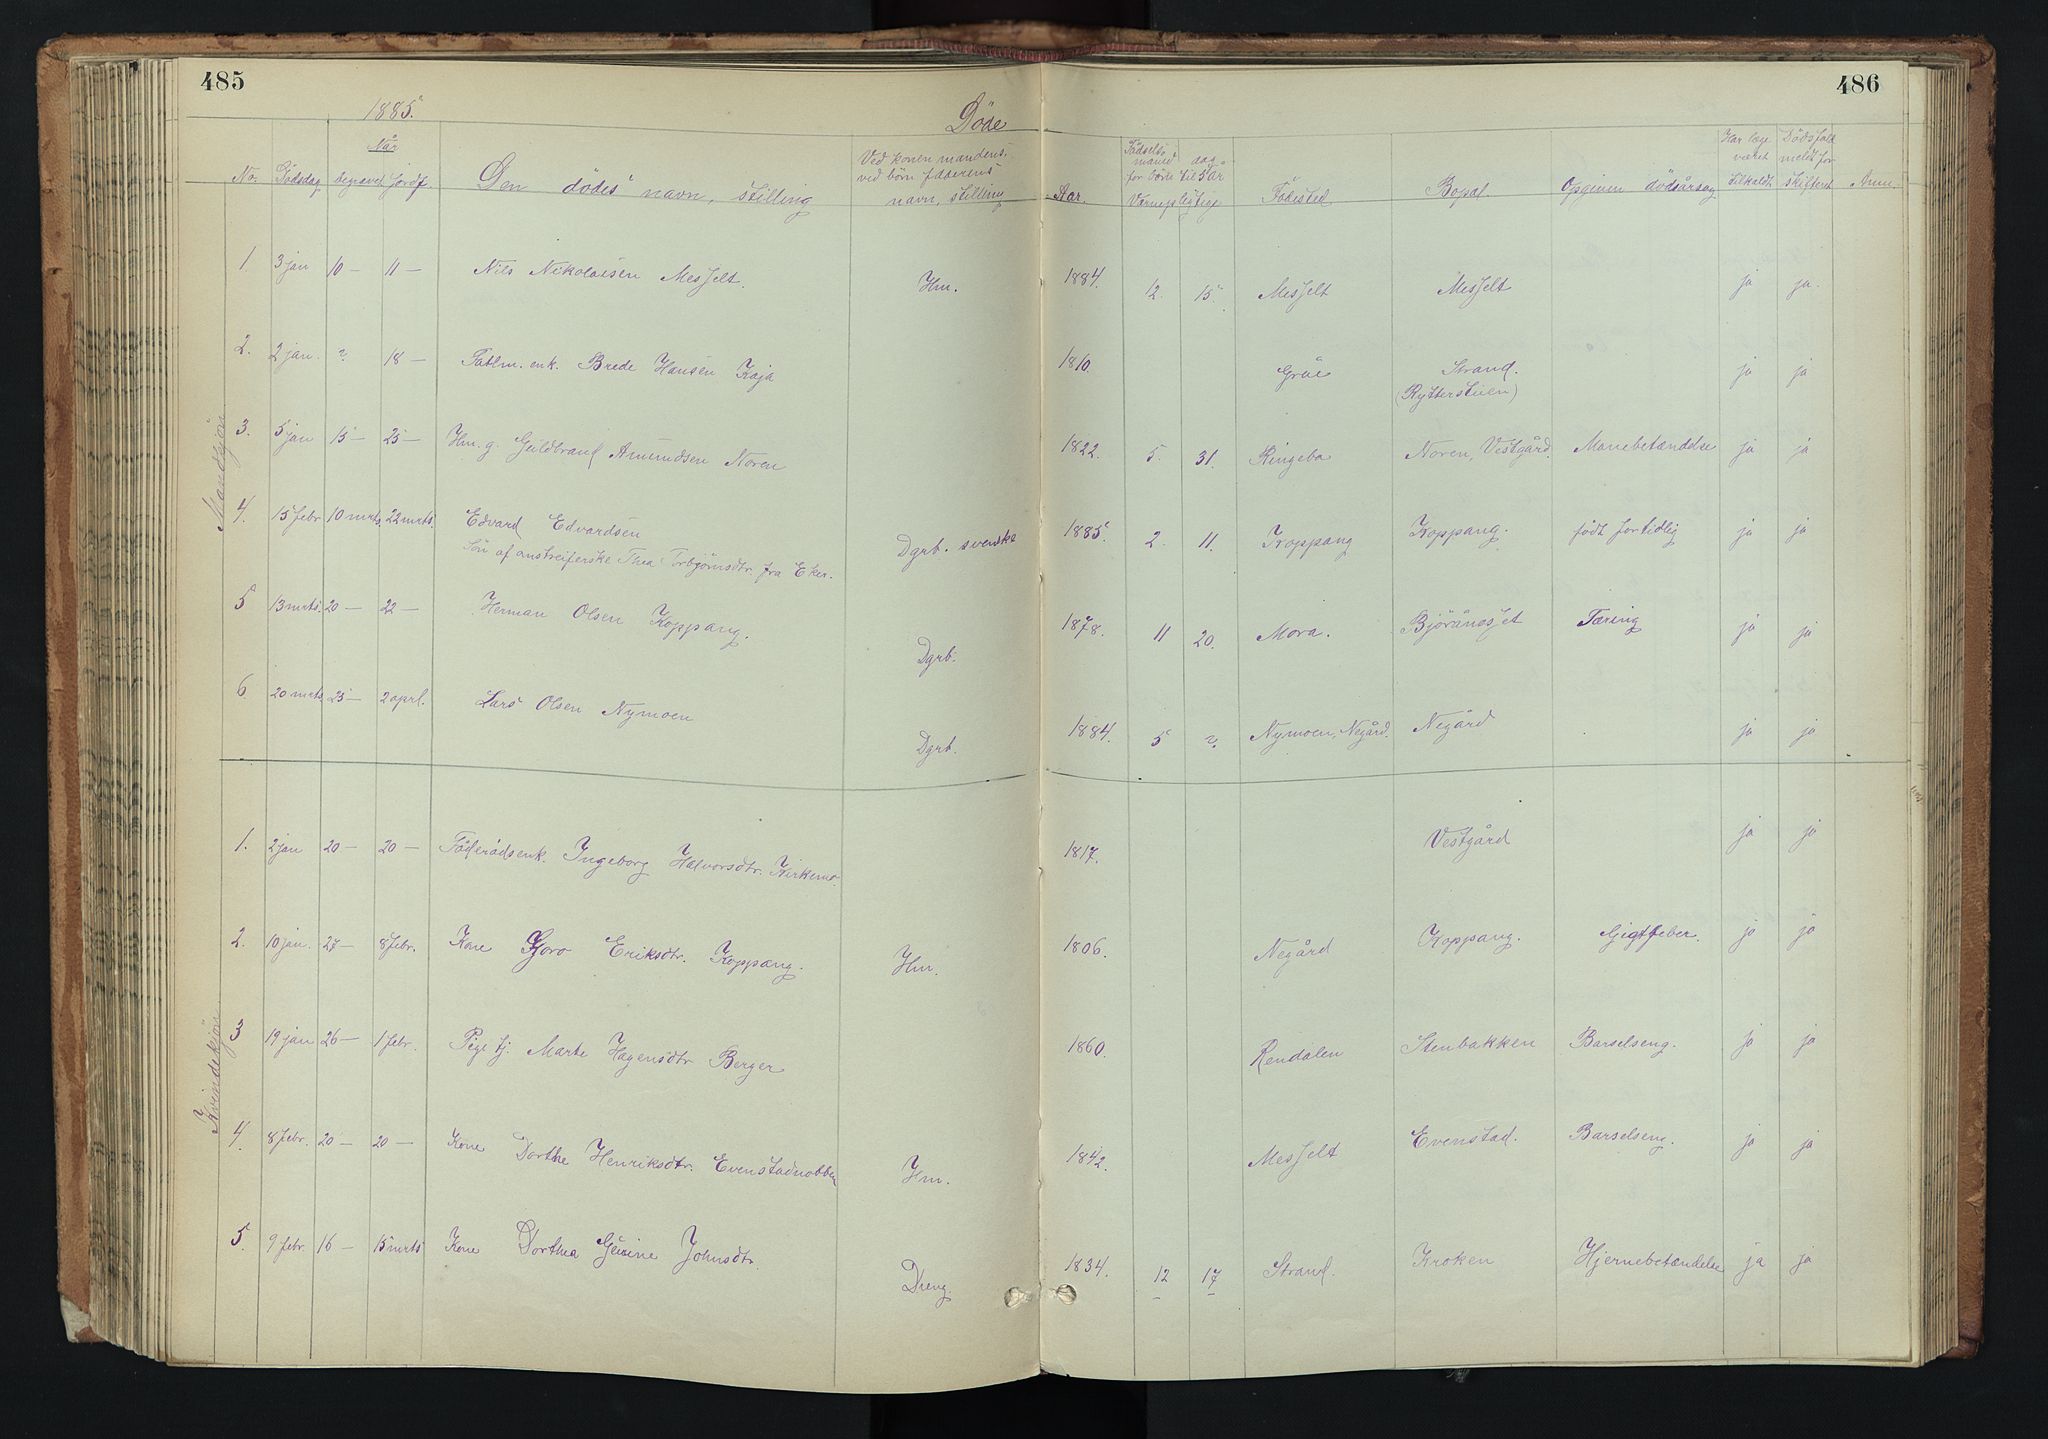 485
486
1885.
Döde
Når
No. Dödsdag begravet jordf. Den dödes navn, stilling Ved koner mandens, ved börn faderens navn, stilling Aar. Födsels- maned dag for börn til 5 år Værnepligtige Födested Bopæl Opgiven dödsårsag Har læge været tilkaldt Dödsfald meldt for skifteret Anm.
Mandkjön
1 3 jan 10 — 11 — Nils Nikolaisen Messelt. Hm. 1884. 12. 15. Messelt Messelt ja ja.
2. 2 jan. ? 18 — Fatlm. enk. Brede Hansen Koja 1810. Grue Strand. (Rytterstuen) ja ja
3. 5 jan 15 — 25 — Hm. g. Guldbrand Amundsen Noren 1822. 5. 31. Ringebo Noren, Vestgård. ja ja
4. 15 febr 10 mrts. 22 mrts. Edvard Edvardsen Dgrb. svenske 1885. 2. 11. Koppang Koppang. født for tidlig ja ja
Sön af omstreiferske Thea Torbjörnsdtr. fra Eker.
5 13 mrts. 20 — 22 — Herman Olsen Koppang. Dgrb. 1878. 11 20. Mora. Björånesset Tæring ja ja
6. 20 mrts 25 — 2 aprl. Lars Olsen Nymoen Dgrb. 1884. 5 ? Nymoen, Negård. Negård ja ja
Kvindekjön
1. 2 jan 20 — 20 — Föderådsenk. Ingeborg Halvorsdtr. Kirkemo. 1817. Vestgård ja ja
2. 10 jan. 27 — 8 febr. Kone Goro Eriksdtr. Koppang. Hm. 1806. Negård Koppang. Gigtfeber. ja ja
3 19 jan 26 — 1 febr. Pige tj. Marte Hagensdtr Berger 1860. Rendalen Stenbakken Barselseng. ja ja
4. 8 febr. 20 — 20 — Kone Dorthe Henriksdtr. Evenstadnobben Hm. 1842. Messelt Evenstad. Barselseng. ja ja
5. 9 febr. 16 — 15 mrts Kone Dorthea Gurine Johnsdtr. Dreng. 1834. 12 17 Strand. Kroken Hjernebetændelse ja ja